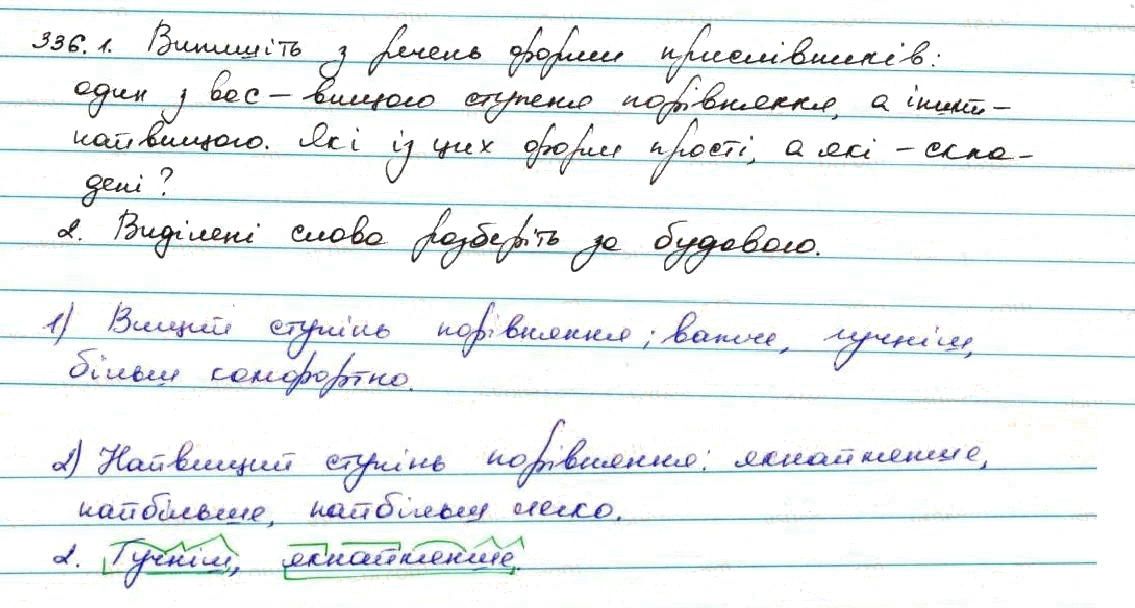 336. 1. Випишіть з речень форми прислівників:
один з вас – вищого ступеня порівняння, а інший –
найвищого. Які із цих форм прості, а які – скла-
дені?
2. Виділені слова розберіть за будовою.
1) Вищий ступінь порівняння; важче, гучніш,
більш комфортно.
2) Найвищий ступінь порівняння: якнайменше,
найбільше, найбільш легко.
2. Гучніш, якнайменше.